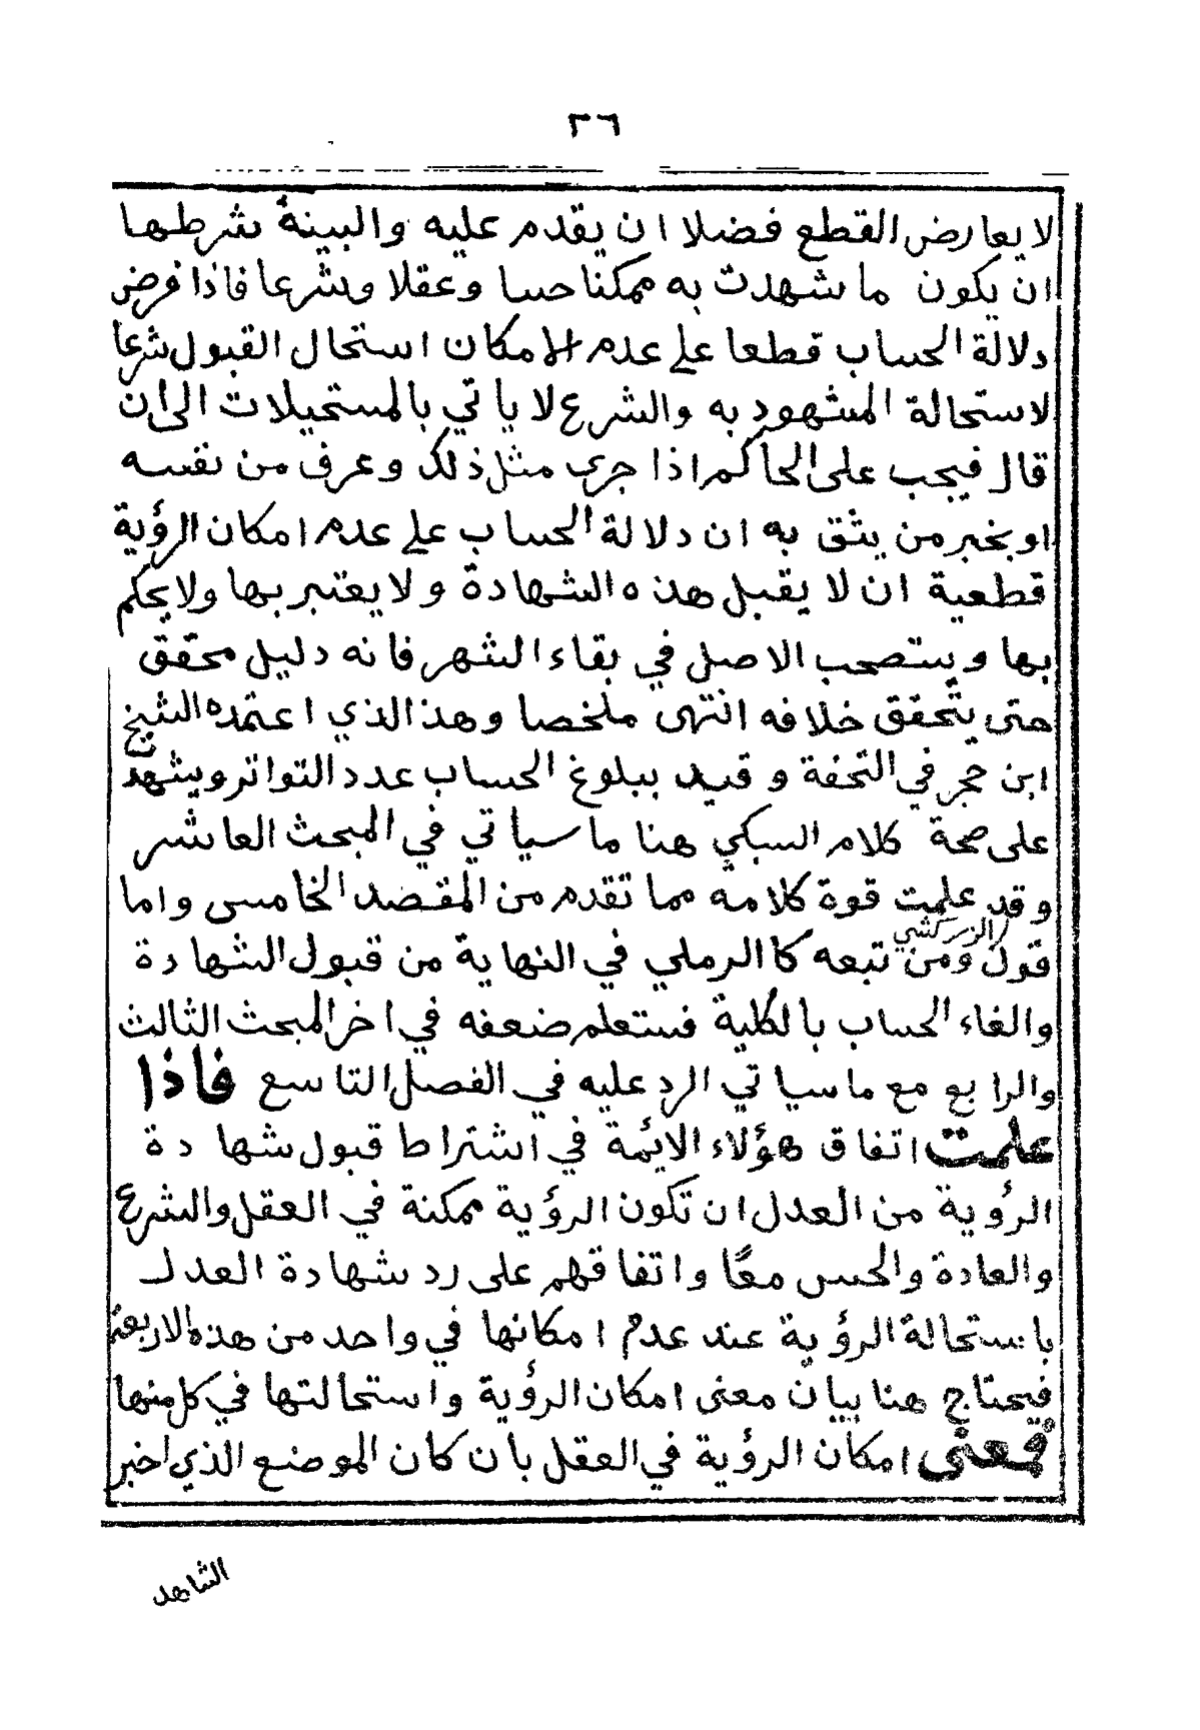 ٣٦
لا يعارض القطع فضلا ان يقدم عليه والبينة شرطها
ان يكون ما شهدت به ممكنا حسا وعقلا وشرعا فاذا فرض
دلالة الحساب قطعا على عدم الامكان استحال القبول شرعا
لاستحالة المشهود به والشرع لا ياتي بالمستحيلات الى ان
قال فيجب على الحاكم اذا جرى مثل ذلك وعرف من نفسه
او بخبر من يثق به ان دلالة الحساب على عدم امكان الرؤية
قطعية ان لا يقبل هذه الشهادة ولا يعتبر بها ولا يحكم
بها ويستصحب الاصل في بقاء الشهر فانه دليل محقق
حتى يتحقق خلافه انتهى ملخصا وهذا الذي اعتمده الشيخ
ابن حجر في التحفة وقيد ببلوغ الحساب عدد التواتر ويشهد
على صحة كلام السبكي هنا ما سياتي في المبحث العاشر
وقد علمت قوة كلامه مما تقدم من المقصد الخامس واما
قول الزركشي ومن تبعه كالرملي في النهاية من قبول الشهادة
والغاء الحساب بالكلية فستعلم ضعفه في اخر المبحث الثالث
والرابع مع ما سياتي الرد عليه في الفصل التاسع فاذا
علمت اتفاق هؤلاء الائمة في اشتراط قبول شهادة
الرؤية من العدل ان تكون الرؤية ممكنة في العقل والشرع
والعادة والحس معًا واتفاقهم على رد شهادة العدل
باستحالة الرؤية عند عدم امكانها في واحد من هذه الاربعة
فيحتاج هنا بيان معنى امكان الرؤية واستحالتها في كل منها
فمعنى امكان الرؤية في العقل بأن كان الموضع الذي اخبر
الشاهد